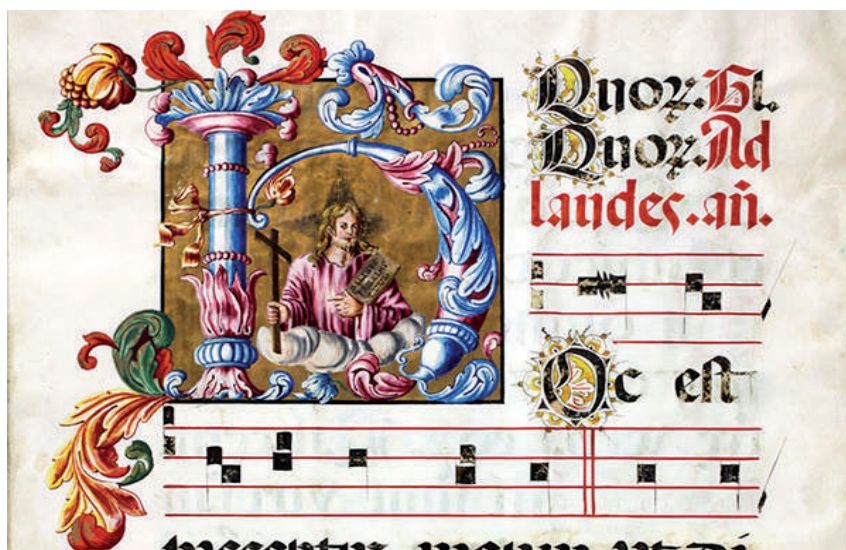 Quoꝝ. Gl.
Quoꝝ. Ad
laudes. añ.
HOc est